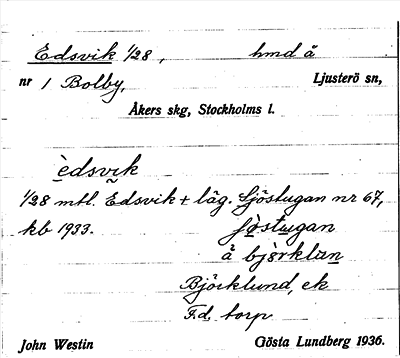 Edsvik 1/28, hmd å
nr 1 Bolby, Ljusterö sn,
Åkers skg, Stockholms l.
èdsvik
1/28 mtl. Edsvik + läg. Sjöstugan nr 67,
kb 1933. ʃöstugan
å björklun
Björklund, ek
F.d. torp
John Westin Gösta Lundberg 1936.